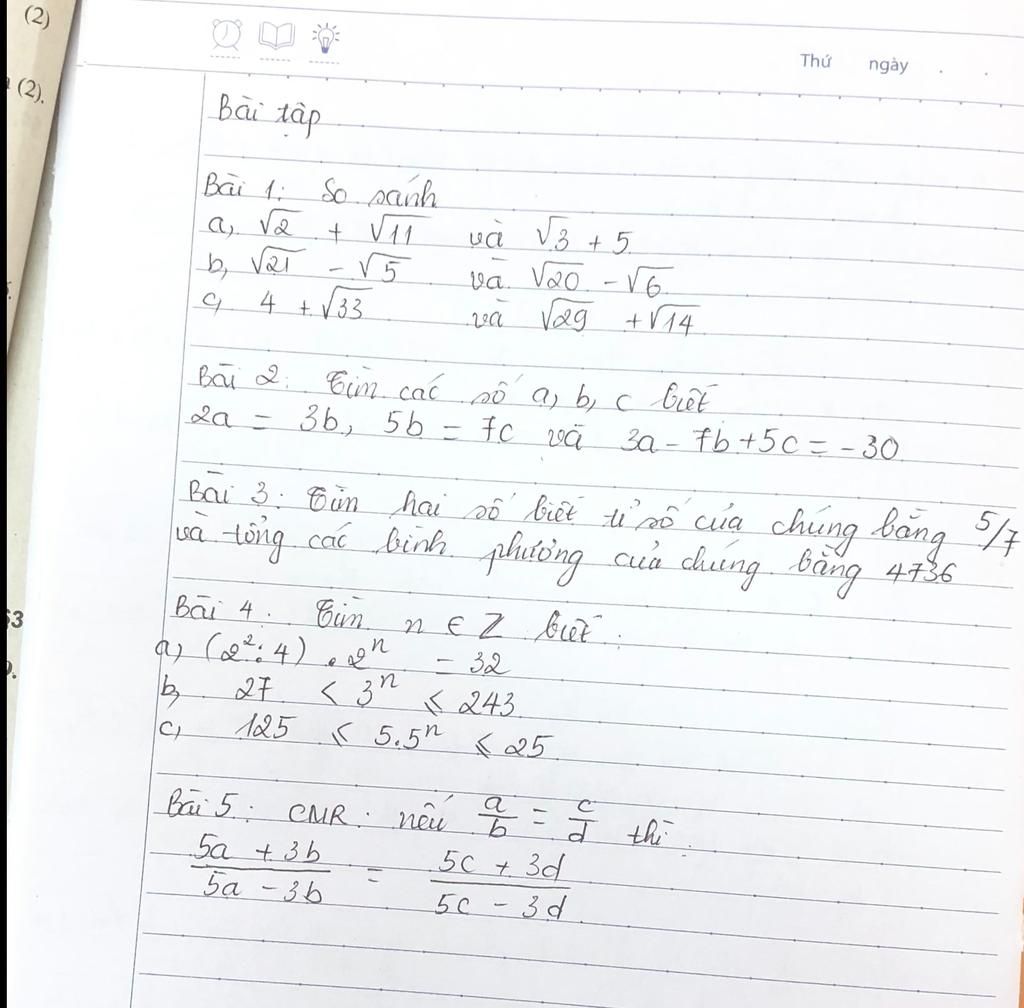 (2)
(2).
Thứ ngày . .
Bài tập
Bài 1: So sánh
a, √2 + √11 và √3 + 5
b, √21 - √5 và √20 - √6
c, 4 + √33 và √29 + √14
Bài 2: Tìm các số a, b, c biết
2a = 3b, 5b = 7c và 3a - 7b + 5c = -30
Bài 3: Tìm hai số biết tỉ số của chúng bằng 5/7
và tổng các bình phương của chúng bằng 4736
Bài 4: Tìm n ∈ Z biết:
a, (2²:4) . 2ⁿ = 32
b, 27 < 3ⁿ ≤ 243
c, 125 ≤ 5.5ⁿ ≤ 25
Bài 5: CMR: nếu a/b = c/d thì:
(5a + 3b)/(5a - 3b) = (5c + 3d)/(5c - 3d)